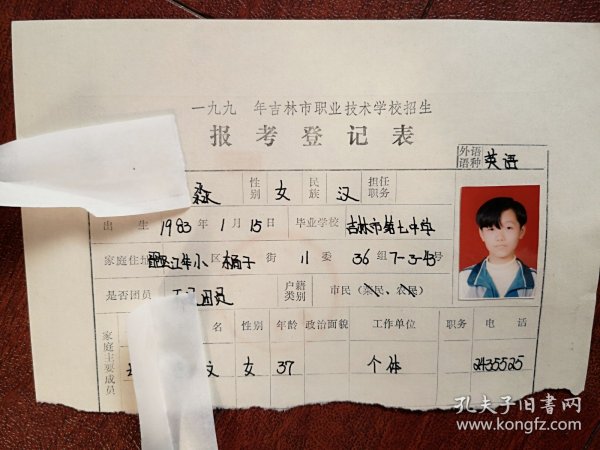 一九九 年吉林市职业技术学校招生
报考登记表
外语语种 英语
淼 性别 女 民族 汉 担任职务
出生 1983年1月15日 毕业学校 吉林市第七中学
家庭住址 江华小区 橘子街 11委 36组 7-3-43号
是否团员 团员 户籍类别 市民（票民、农民）
家庭主要成员 名 性别 年龄 政治面貌 工作单位 职务 电话
文 女 37 个体 2435525
孔夫子旧书网
www.kongfz.com